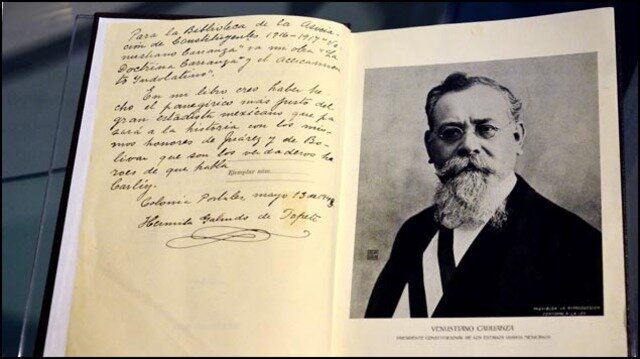 Para la Biblioteca de la Asocia-
ción de Constituyentes 1916-1917 "Ve-
nustiano Carranza" va mi obra "La
Doctrina Carranza" y el Acercamien-
to Indolatino".
En mi libro creo haber he-
cho el panegírico mas justo del
gran estadista mexicano que pa-
sará a la historia con los mis-
mos honores de Juárez y de Bo-
livar que son los verdaderos hé-
roes de que habla
Carlily.
Ejemplar núm.
Colonia Portales, mayo 13 de
Hermila Galindo de Topete
PROHIBIDA LA REPRODUCCION
CONFORME A LA LEY
VENUSTIANO CARRANZA
PRESIDENTE CONSTITUCIONAL DE LOS ESTADOS UNIDOS MEXICANOS